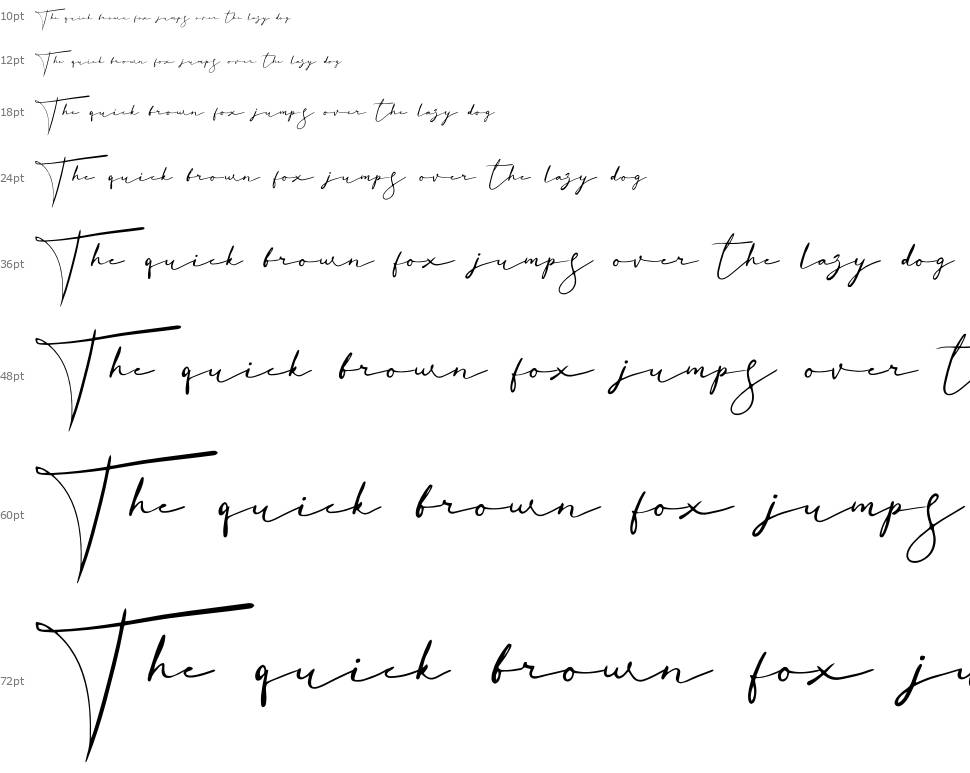 10pt The quick brown fox jumps over the lazy dog
12pt The quick brown fox jumps over the lazy dog
18pt The quick brown fox jumps over the lazy dog
24pt The quick brown fox jumps over the lazy dog
36pt The quick brown fox jumps over the lazy dog
48pt The quick brown fox jumps over t
60pt The quick brown fox jumps
72pt The quick brown fox ju